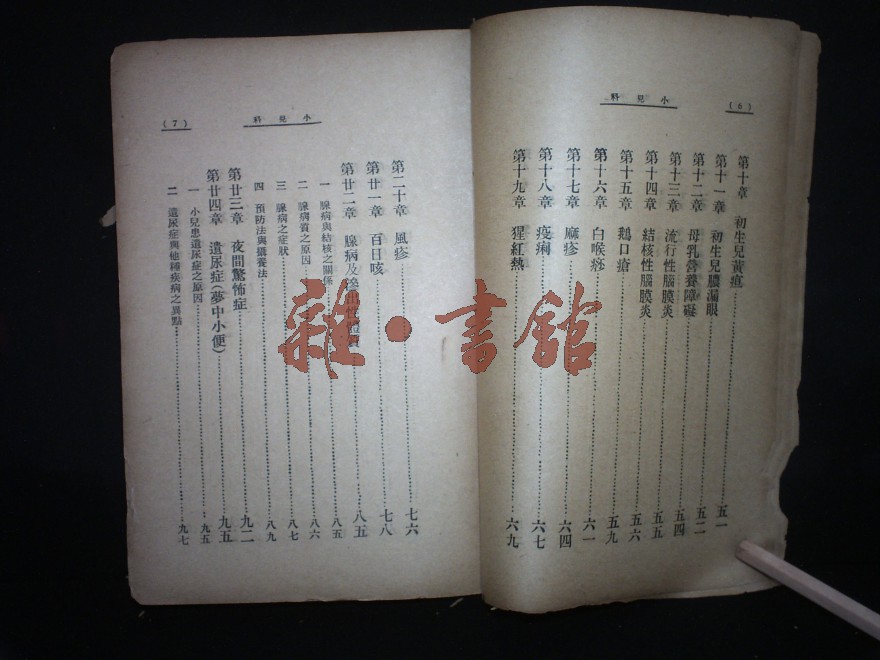 (6)
小兒科
第十章　初生兒黃疸……五一
第十一章　初生兒膿漏眼……五二
第十二章　母乳營養障礙……五四
第十三章　流行性腦膜炎……五五
第十四章　結核性腦膜炎……五六
第十五章　鵝口瘡……五九
第十六章　白喉痧……六一
第十七章　麻疹……六四
第十八章　疫痢……六七
第十九章　猩紅熱……六九
小兒科
(7)
第二十章　風疹……七六
第廿一章　百日咳……七八
第廿二章　腺病及滲出性……八五
一　腺病與結核之關係……八五
二　腺病質之原因……八六
三　腺病之症狀……八七
四　預防法與攝養法……八九
第廿三章　夜間驚怖症……九二
第廿四章　遺尿症(夢中小便)……九五
一　小兒患遺尿症之原因……九五
二　遺尿症與他種疾病之異點……九七
雜·書館